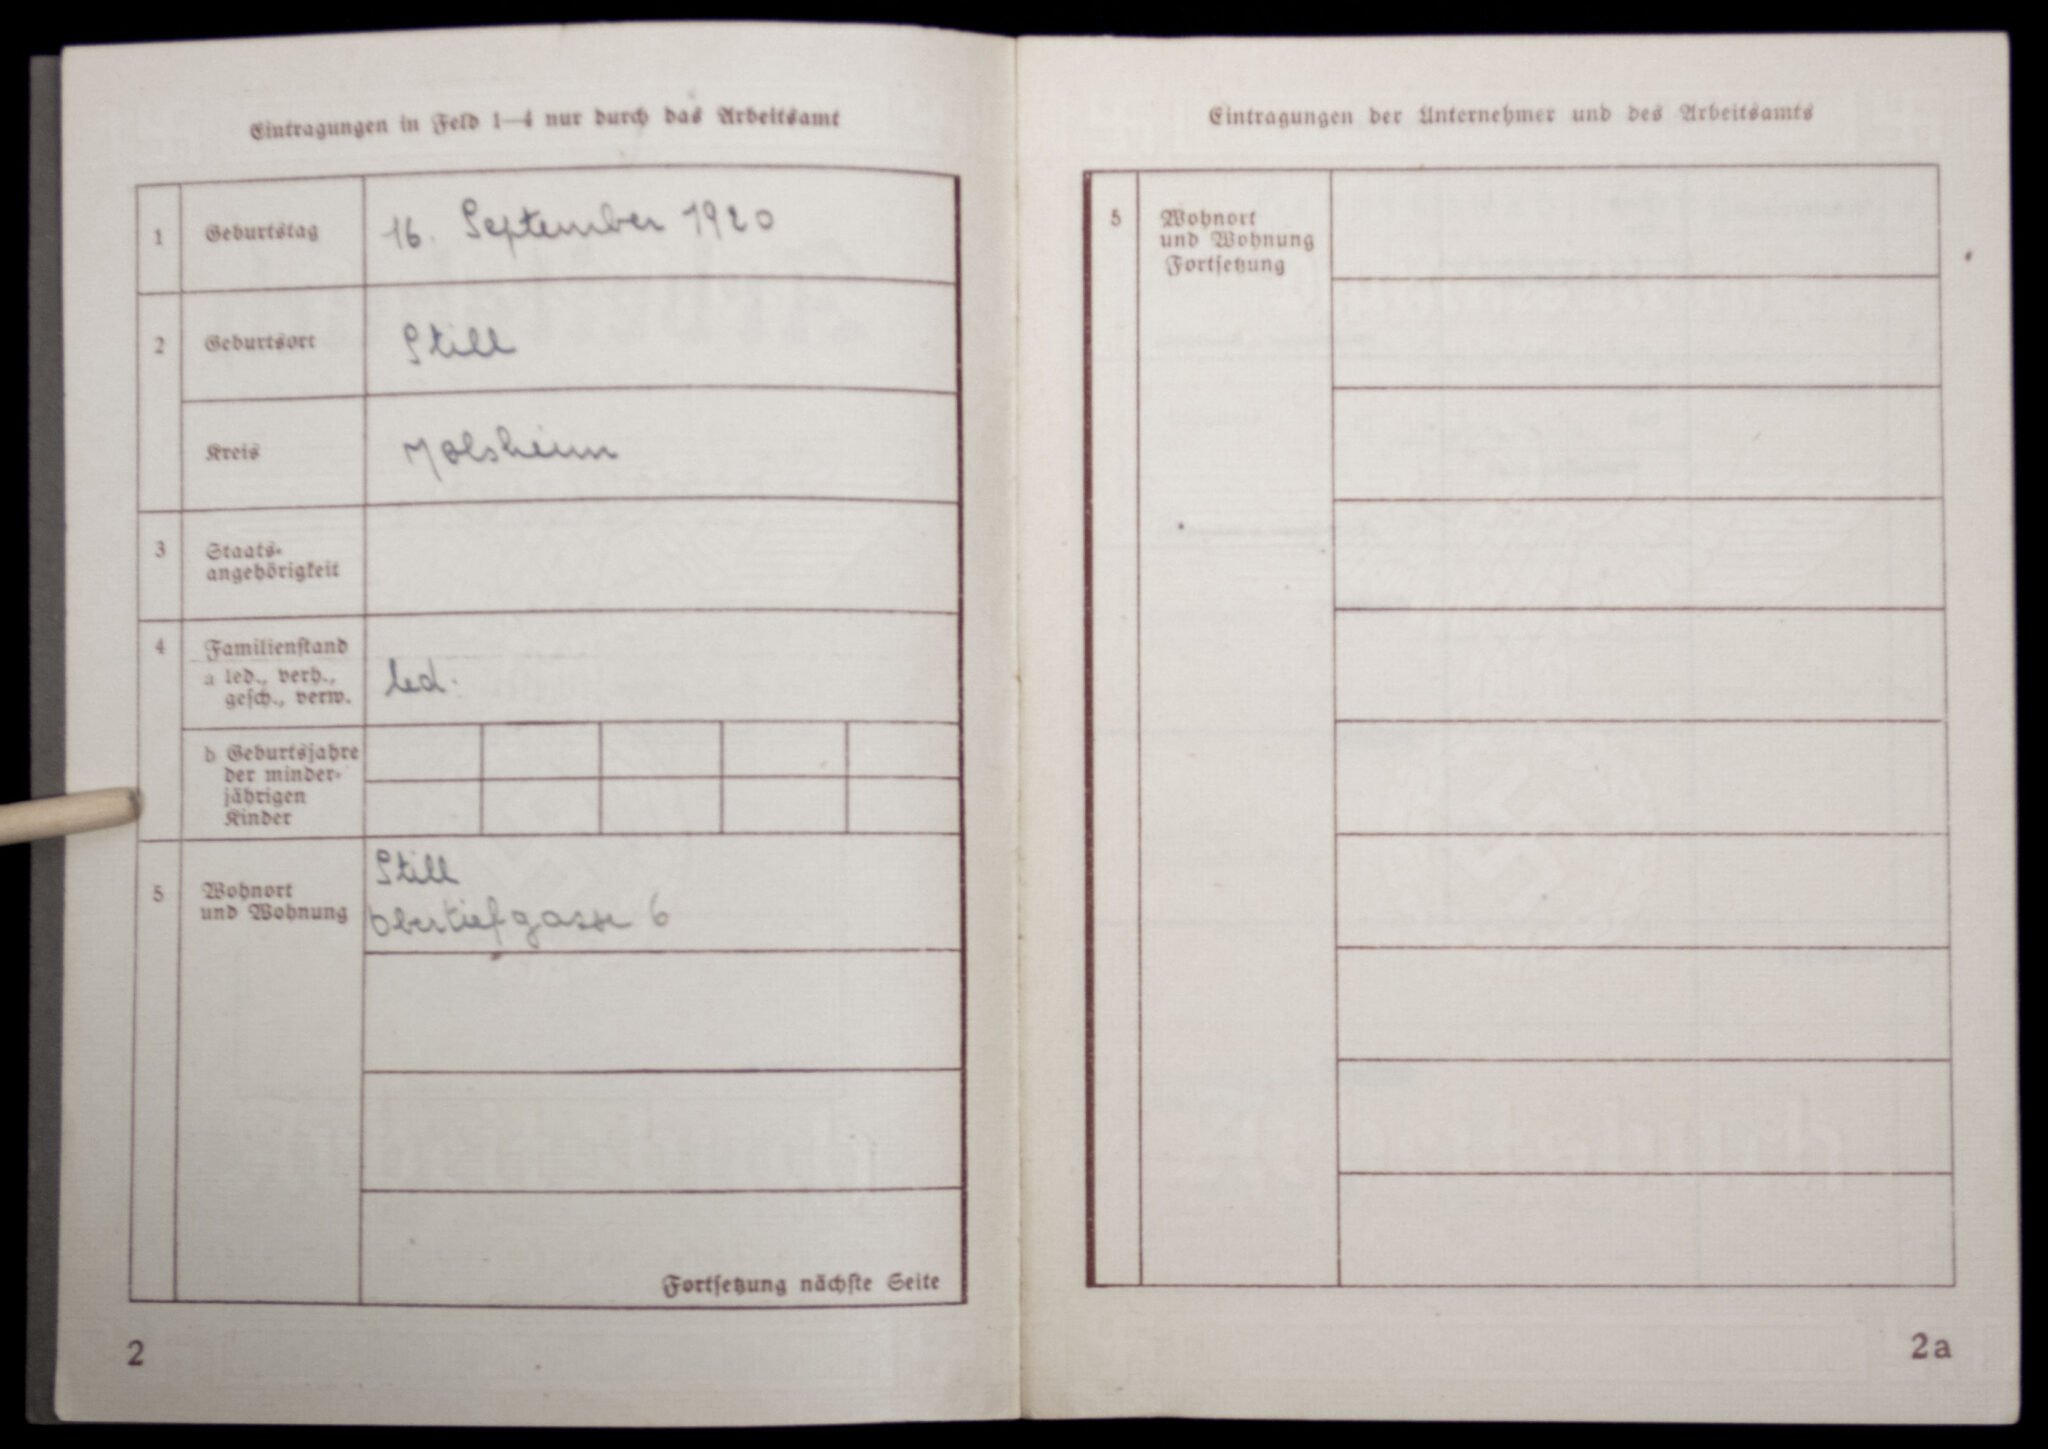 Eintragungen in Feld 1—4 nur durch das Arbeitsamt
1 Geburtstag 16. September 1920
2 Geburtsort Still
Kreis Molsheim
3 Staats-
angehörigkeit
4 Familienstand
a led., verh.,
gesch., verw.
led.
b Geburtsjahre
der minder-
jährigen
Kinder
5 Wohnort
und Wohnung
Still
Obertiefgasse 6
Fortsetzung nächste Seite
2
Eintragungen der Unternehmer und des Arbeitsamts
5 Wohnort
und Wohnung
Fortsetzung
2a